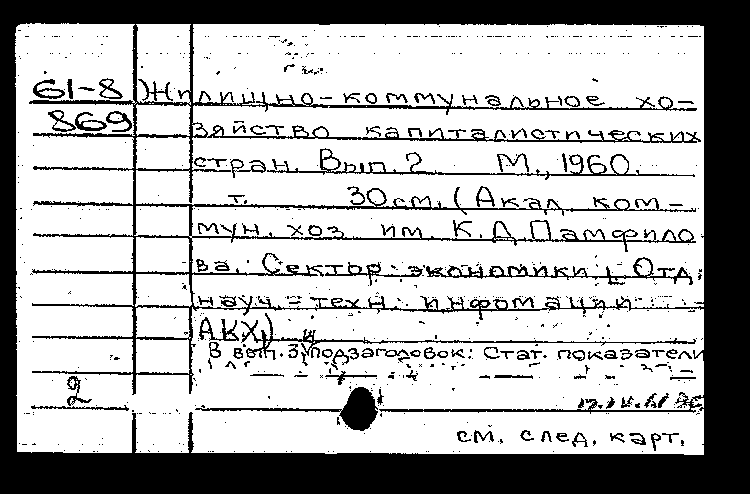 61-8 Жилищно-коммунальное хо-
869 зяйство капиталистических
стран. Вып. 2. М., 1960.
т. 30см. (Акад. ком-
мун. хоз. им. К.Д. Памфило
ва. Сектор экономики и Отд.
науч.-техн. инфомации
АКХ)
В вып. 3, подзаголовок: Стат. показатели
2
см. след. карт.